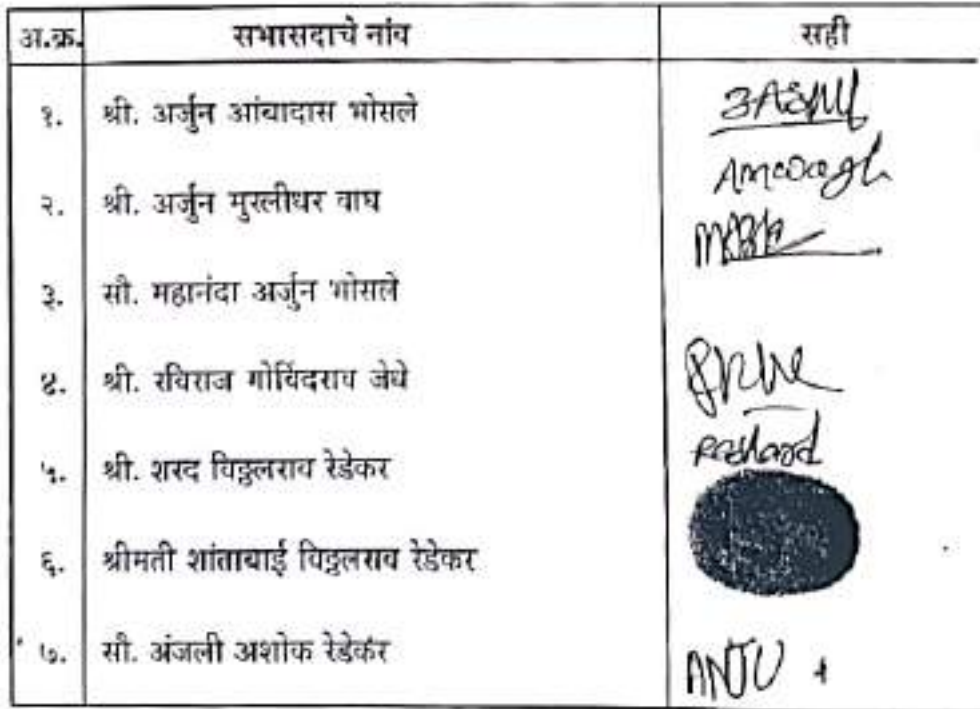 अ.क्र. सभासदाचे नांव सही
१. श्री. अर्जुन आंबादास भोसले
२. श्री. अर्जुन मुरलीधर वाघ Amwagh
३. सौ. महानंदा अर्जुन भोसले
४. श्री. रविराज गोविंदराव जेधे
५. श्री. शरद विठ्ठलराव रेडेकर
६. श्रीमती शांताबाई विठ्ठलराव रेडेकर
७. सौ. अंजली अशोक रेडेकर ANJU